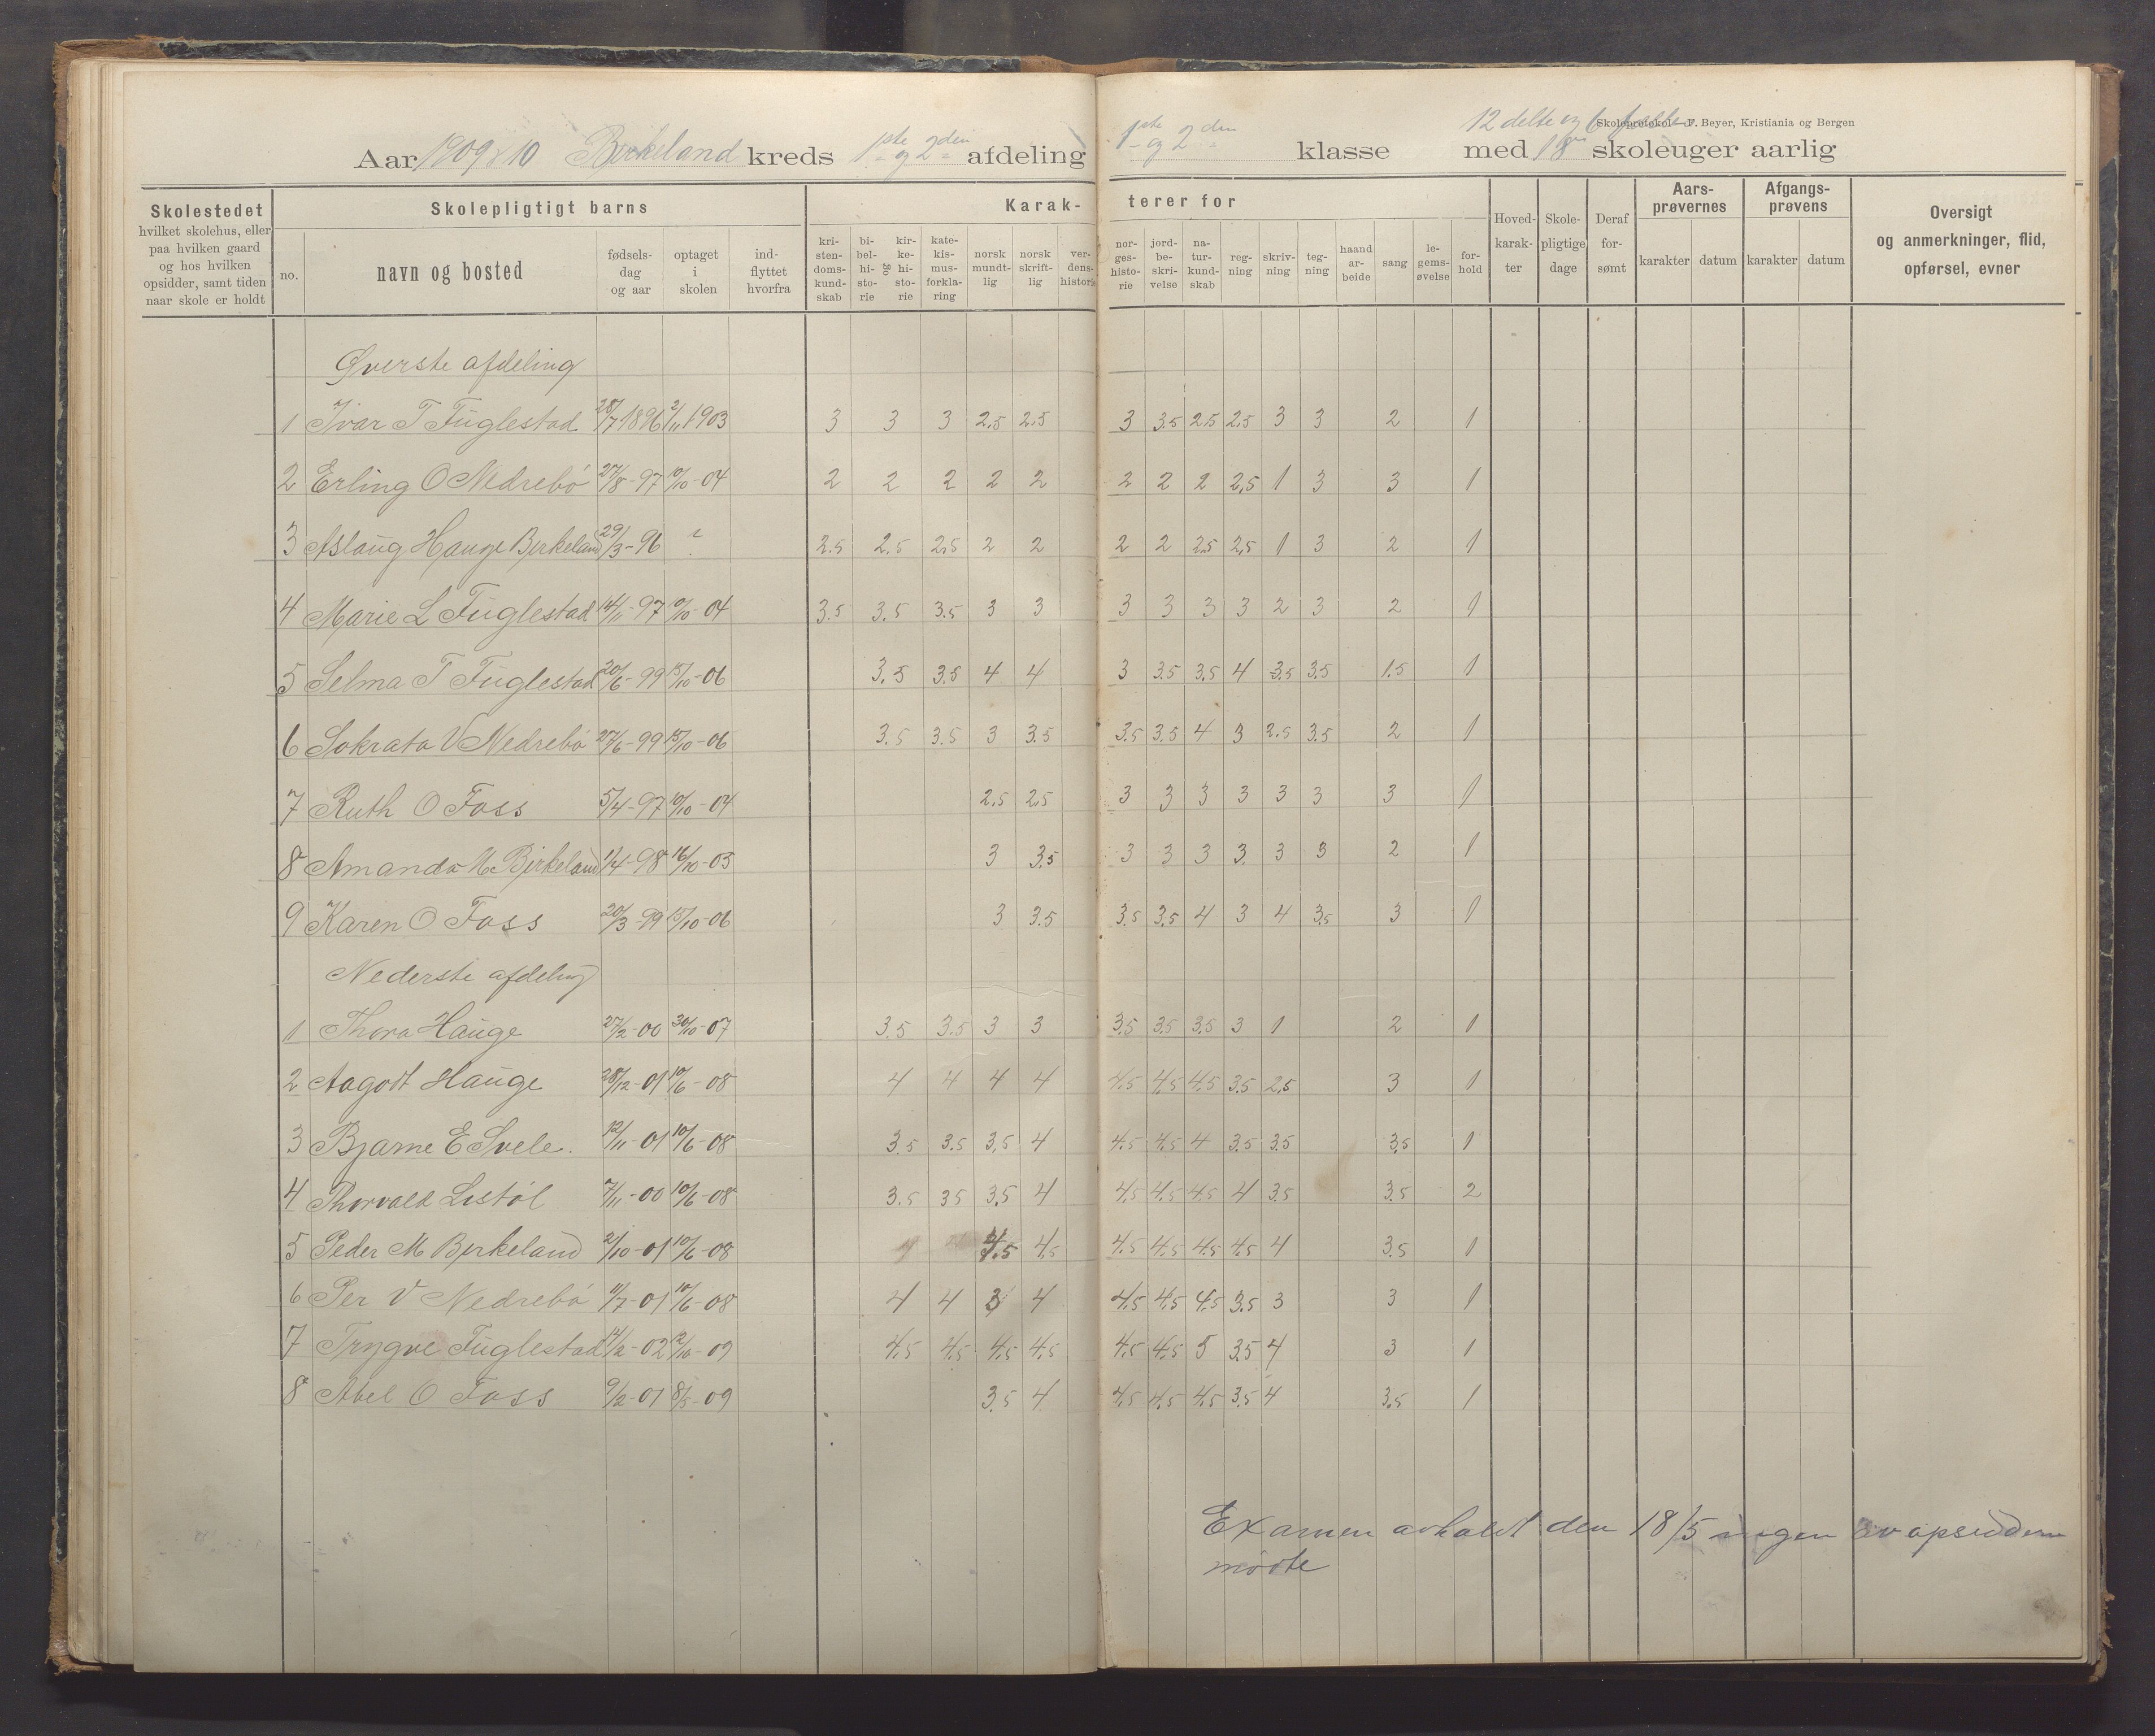 Skoleprotokol — F. Beyer, Kristiania og Bergen
12 delte og 6
Aar 1909 & 10 Birkeland kreds 1ste og 2den afdeling 1ste og 2den klasse med 18 skoleuger aarlig
Skolestedet hvilket skolehus, eller paa hvilken gaard og hos hvilken opsidder, samt tiden naar skole er holdt
Skolepligtigt barns
no. navn og bosted fødsels-dag og aar optaget i skolen ind-flyttet hvorfra
Karak-terer for
kri-sten-doms-kund-skab bi-bel-hi-sto-rie og kir-ke-hi-sto-rie kate-kis-mus-forkla-ring norsk mundt-lig norsk skrift-lig ver-dens-historie nor-ges-histo-rie jord-be-skri-velse na-tur-kund-skab reg-ning skriv-ning teg-ning haand ar-beide sang le-gems-øvelse for-hold
Hoved-karak-ter Skole-pligtige dage Deraf for-sømt
Aars-prøvernes karakter datum
Afgangs-prøvens karakter datum
Oversigt og anmerkninger, flid, opførsel, evner
Øverste afdeling
1 Ivar T Fuglestad 28/7 1896 2/11 1903 3 3 3 2,5 2,5 3 3.5 2.5 2,5 3 3 2 1
2 Erling O Nedrebø 27/8-97 10/10-04 2 2 2 2 2 2 2 2 2,5 1 3 3 1
3 Aslaug Hauge Birkeland 29/3-96 ? 2.5 2.5 2,5 2 2 2 2 2,5 2,5 1 3 2 1
4 Marie L Fuglestad 14/11-97 10/10-04 3.5 3.5 3.5 3 3 3 3 3 3 2 3 2 1
5 Selma T Fuglestad 20/6-99 15/10-06 3.5 3.5 4 4 3 3.5 3,5 4 3.5 3.5 1.5 1
6 Sokrata V Nedrebø 27/6-99 15/10-06 3.5 3.5 3 3.5 3.5 3.5 4 3 2.5 3.5 2 1
7 Ruth O Foss 5/4-97 10/10-04 2,5 2,5 3 3 3 3 3 3 3 1
8 Amanda M. Birkeland 1/4-98 16/10-05 3 3.5 3 3 3 3 3 3 2 1
9 Karen O Foss 20/3-99 15/10-06 3 3.5 3.5 3.5 4 3 4 3.5 3 1
Nederste afdeling
1 Thora Hauge 27/2-00 30/10-07 3.5 3.5 3 3 3.5 3.5 3.5 3 1 2 1
2 Aagodt Hauge 28/12-01 10/6-08 4 4 4 4 4.5 4.5 4.5 3.5 2,5 3 1
3 Bjarne E Svele. 12/11-01 10/6-08 3.5 3.5 3,5 4 4.5 4.5 4 3.5 3.5 3,5 1
4 Thorvald Listøl 7/11-00 10/6-08 3.5 3 5 3.5 4 4.5 4.5 4.5 4 3.5 3.5 2
5 Peder M Birkeland 2/10-01 10/6-08 4.5 4.5 4.5 4.5 4.5 4.5 4 3.5 1
6 Per V Nedrebø 11/7-01 10/6-08 4 4 3 4 4.5 4.5 4.5 3.5 3 3 1
7 Trygve Fuglestad 14/2-02 12/10-09 4.5 4.5 4.5 4.5 4.5 4.5 5 3.5 4 3 1
8 Abel O Foss 9/2-01 8/5-09 3.5 4 4.5 4.5 4.5 3.5 4 3.5 1
Examen avholdt den 18/5 ingen av opsidderne
mødte